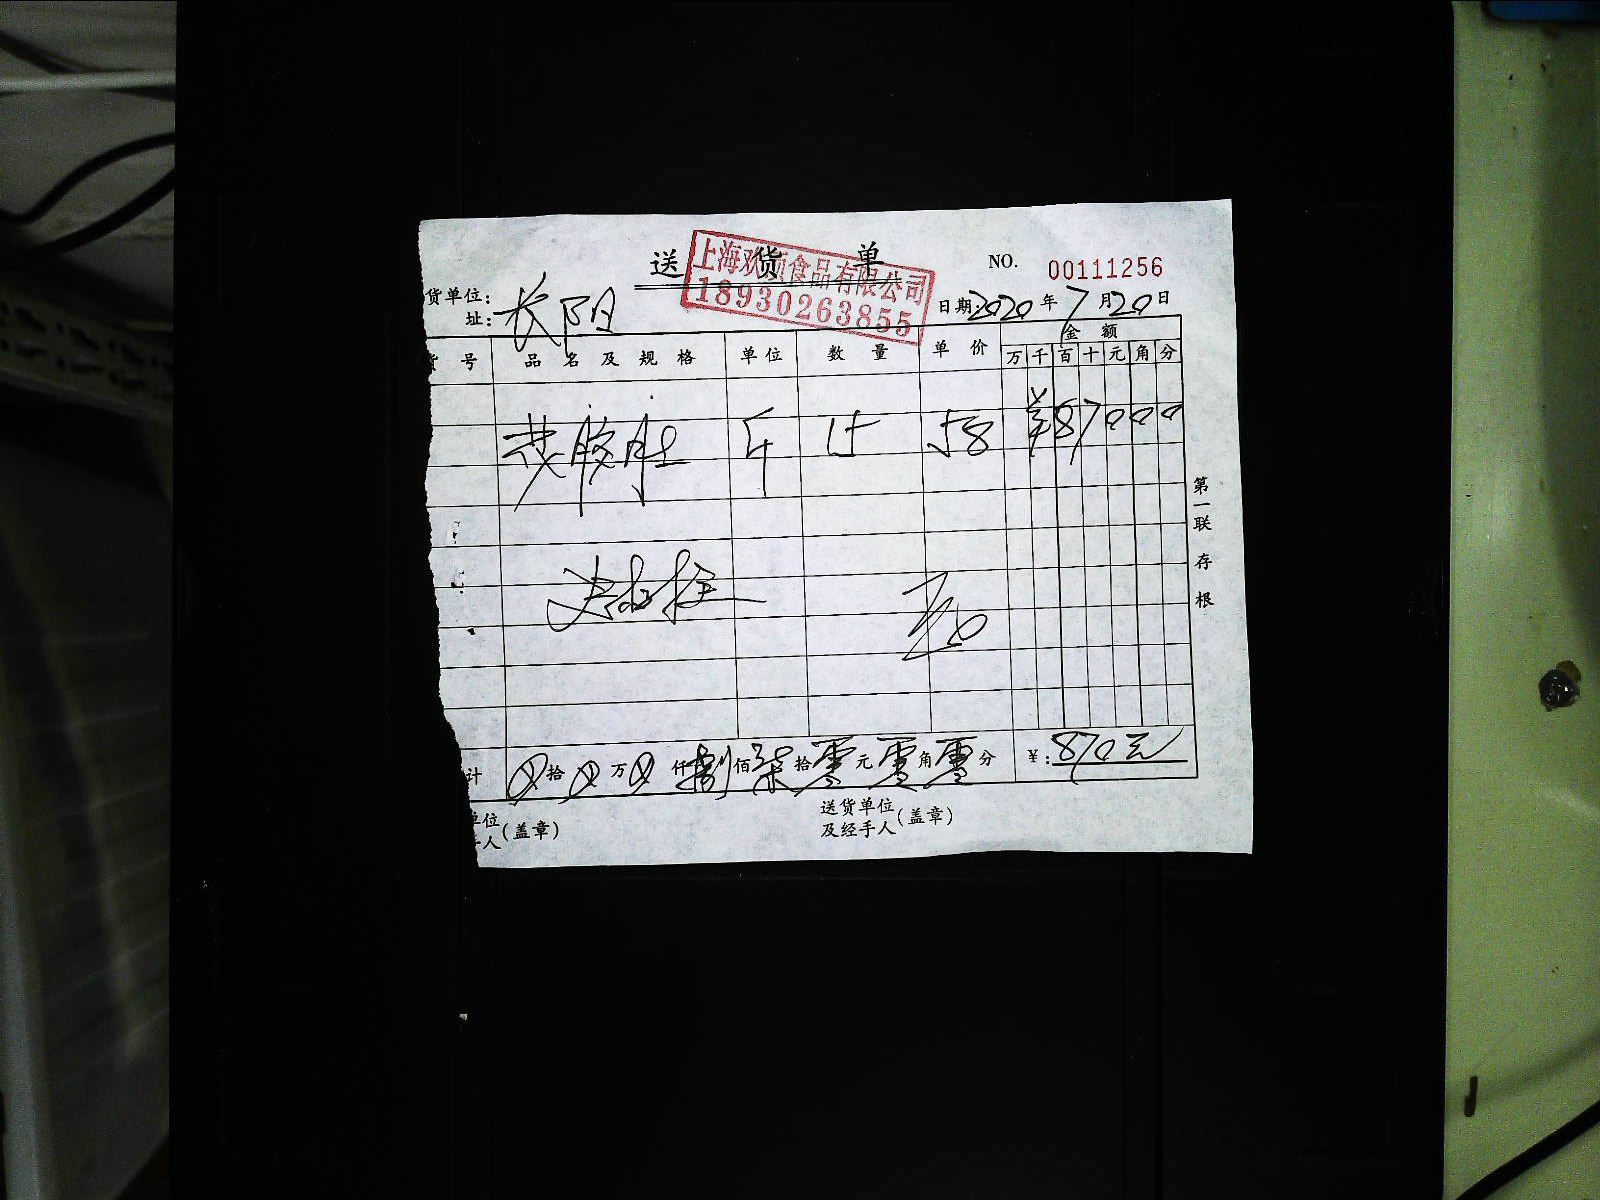 送 货 单
上海欢 食品有限公司
18930263855
NO. 00111256
货单位: 长阳
址:
日期: 2020 年 7 月 20 日
货 号 品 名 及 规 格 单 位 数 量 单 价 金 额
万 千 百 十 元 角 分
斤 15 58 ¥ 8 7 0 0 0
计 拾 万 仟 捌 佰 柒 拾 零 元 零 角 零 分 ¥: 870元
单位
人 (盖章)
送货单位
及经手人 (盖章)
第一联 存根